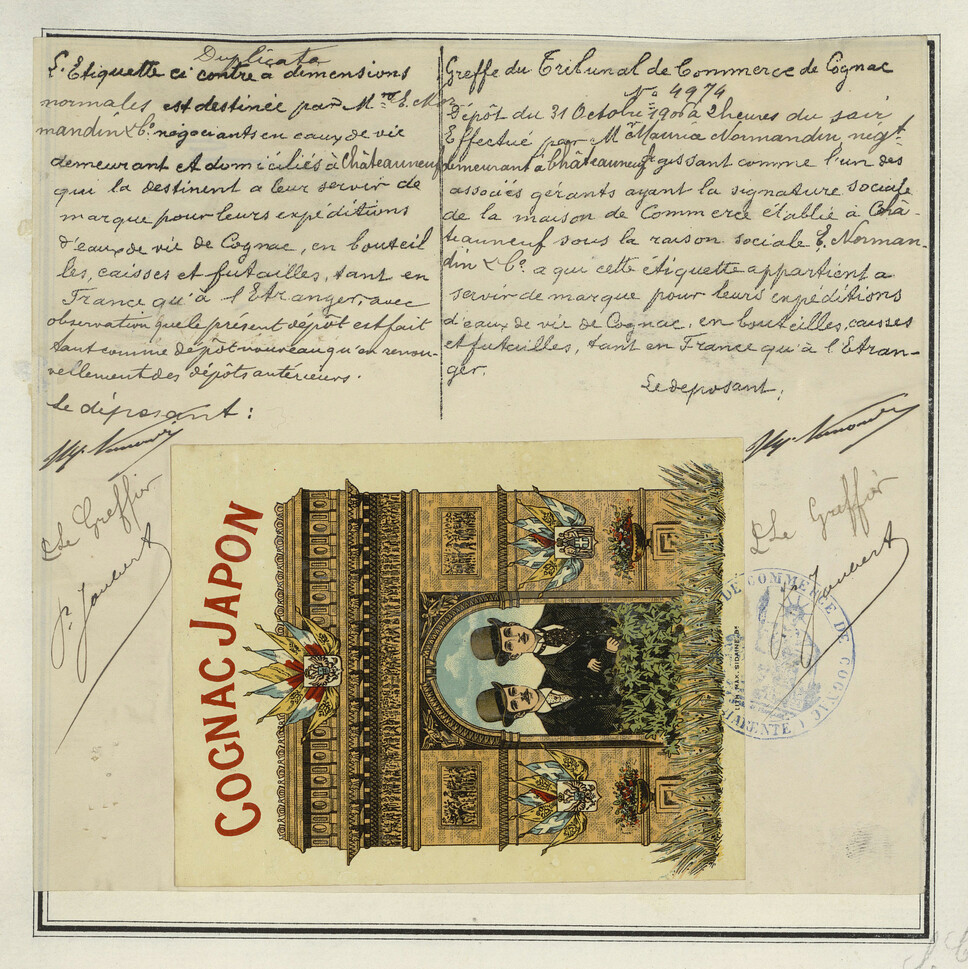 Duplicata
L'Etiquette ci contre à dimensions
normales est destinée par Mrs E. Nor
mandin & Co négociants en eaux de vie
demeurant et domiciliés à Châteauneuf
qui la destinent a leur servir de
marque pour leurs expéditions
d'eaux de vie de Cognac, en bouteil
les, caisses et futailles, tant en
France qu'à l'Etranger, avec
observation que le présent dépôt est fait
tant comme dépôt nouveau qu'en renou-
vellement des dépôts antérieurs.
Le déposant :
Le Greffier
P. Joubert
Greffe du Tribunal de Commerce de Cognac
No 4974
Dépôt du 31 Octobre 1906 à 2 heures du soir
Effectué par Mr Maurice Normandin, négt
demeurant à Châteauneuf agissant comme l'un des
associés gérants ayant la signature sociale
de la maison de Commerce établie à Châ-
teauneuf sous la raison sociale E. Norman-
din & Co a qui cette étiquette appartient a
servir de marque pour leurs expéditions
d'eaux de vie de Cognac, en bouteilles, caisses
et futailles, tant en France qu'à l'Etran-
ger.
Le deposant,
Le Greffier
P. Joubert
COGNAC JAPON
LITH. MAX. SIDAINE
DE COMMERCE DE COGNAC
CHARENTE